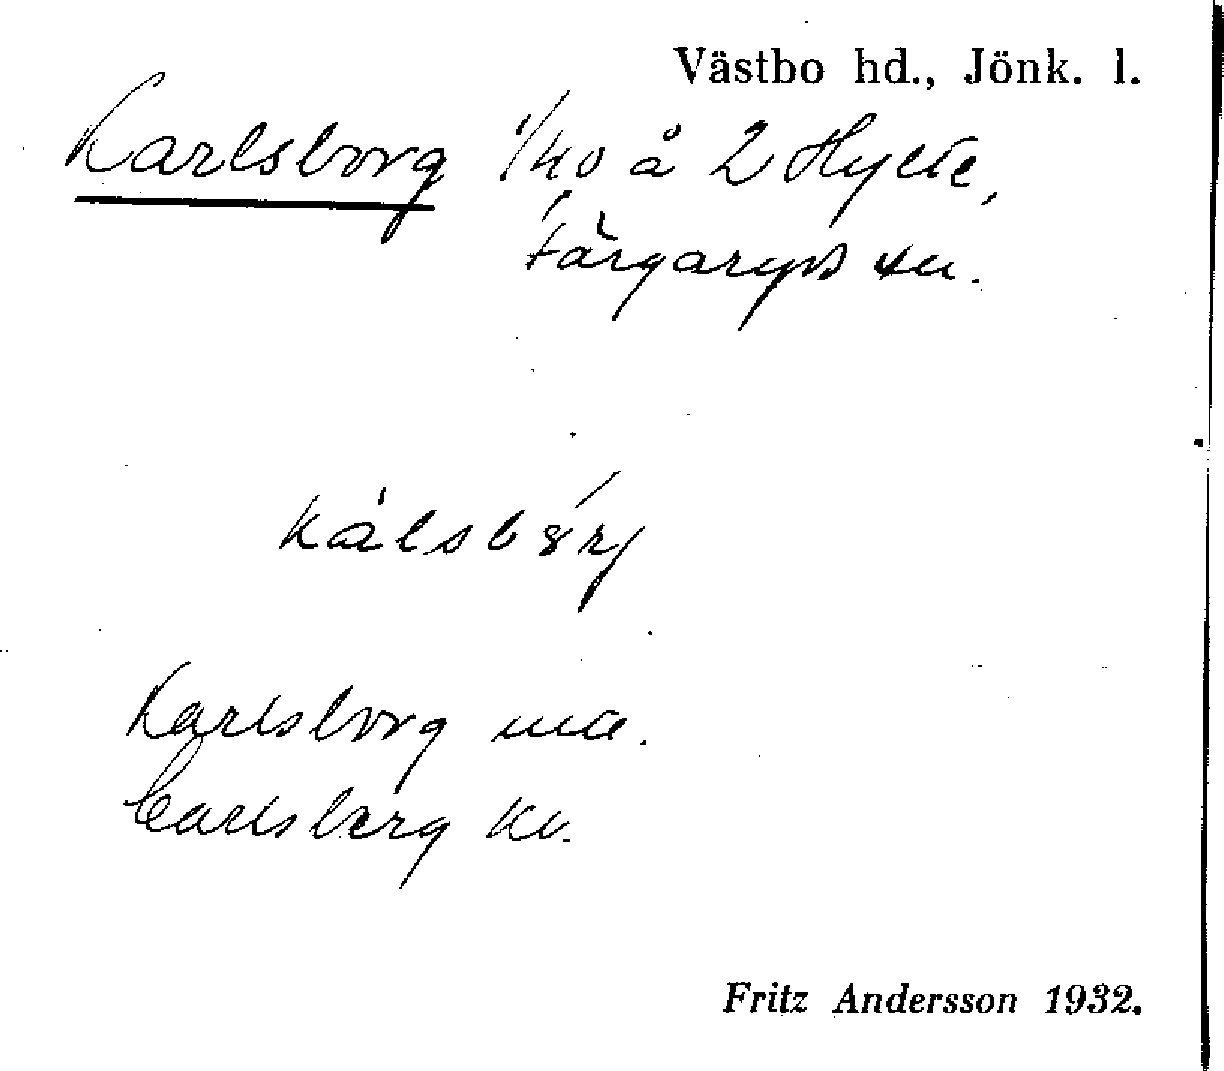 Västbo hd., Jönk. l.
Karlsborg 1/40 å 2 Hylte,
Färgaryds sn.
Karlsborg
Carlsberg kv.
Fritz Andersson 1932.